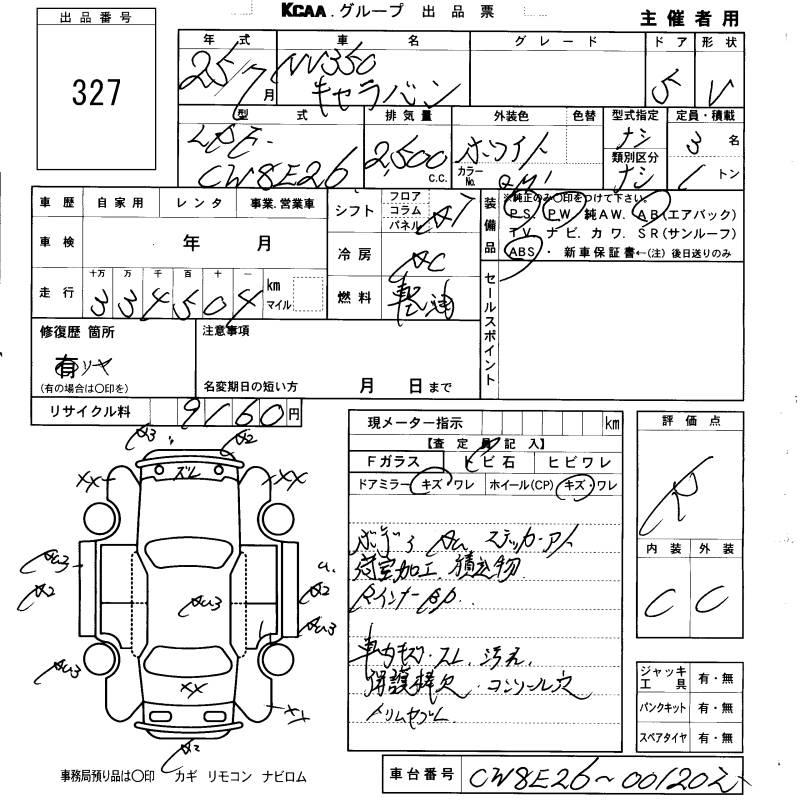 KCAA.グループ 出品票
主催者用
出品番号
327
年式 車名 グレード ドア 形状
25/7月 NV350 キャラバン 5 V
型式 排気量 外装色 色替 型式指定 定員・積載
LDF-CW8E26 2,500 c.c. ホワイト カラーNo. QM1 ナシ 3名
類別区分 ナシ 1トン
車歴 自家用 レンタ 事業.営業車
シフト フロア コラム パネル AT
装備品 ※純正のみ○印をつけて下さい。
P S. P W. 純A W. A B(エアバック)
T V. ナ ビ. カ ワ. S R(サンルーフ)
ABS・ 新車保証書←(注)後日送りのみ
車検 年 月
冷房 AC
走行 十万 万 千 百 十 一 km マイル
334504
燃料 軽油
セールスポイント
修復歴 箇所
有
(有の場合は○印を)
注意事項
名変期日の短い方 月 日まで
リサイクル料 9160円
現メーター指示 km
【査定員記入】
Fガラス トビ石 ヒビワレ
ドアミラー キズ・ワレ ホイール(CP) キズ・ワレ
評価点
R
内装 外装
C C
ボデー ステッカーアト
荷室加工. 積込物
Rインナー
汚れ.
コンソール穴
A3 A2
XX ズレ XX
A2 A2
XX
XX
A2
ジャッキ工具 有・無
パンクキット 有・無
スペアタイヤ 有・無
事務局預り品は○印 カギ リモコン ナビロム
車台番号 CW8E26~001202